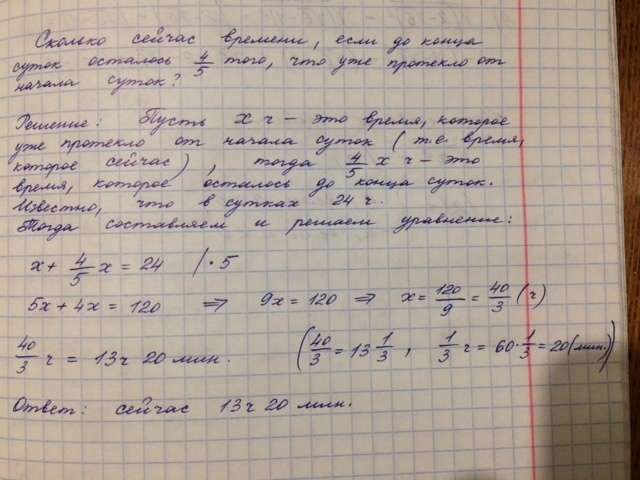 Сколько сейчас времени, если до конца
суток осталось 4/5 того, что уже протекло от
начала суток?
Решение: Пусть х ч – это время, которое
уже протекло от начала суток (т.е время,
которое сейчас), тогда 4/5 х ч – это
время, которое осталось до конца суток.
Известно, что в сутках 24 ч.
Тогда составляем и решаем уравнение:
x + 4/5 x = 24 | · 5
5x + 4x = 120 ⇒ 9x = 120 ⇒ x = 120/9 = 40/3 (ч)
40/3 ч = 13 ч 20 мин. (40/3 = 13 1/3, 1/3 ч = 60 · 1/3 = 20 (мин.))
Ответ: сейчас 13 ч 20 мин.